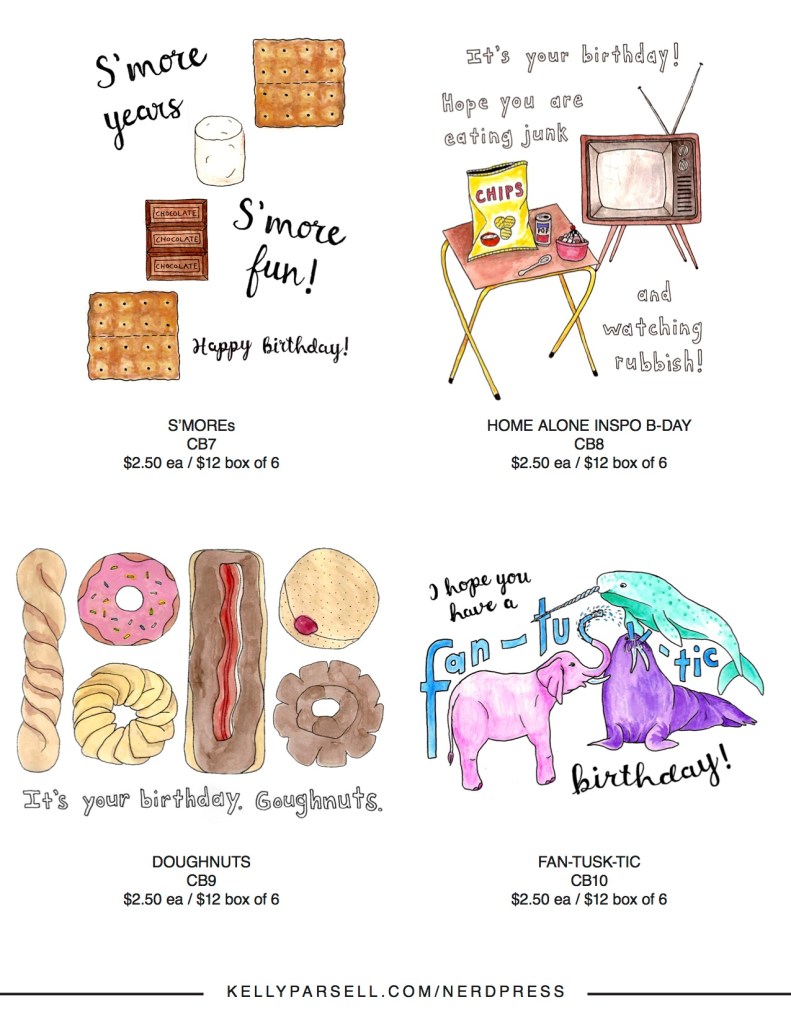 S'more
years
CHOCOLATE
CHOCOLATE
CHOCOLATE
S'more
fun!
Happy birthday!
S'MOREs
CB7
$2.50 ea / $12 box of 6
It's your birthday!
Hope you are
eating junk
CHIPS
POP
and
watching
rubbish!
HOME ALONE INSPO B-DAY
CB8
$2.50 ea / $12 box of 6
It's your birthday. Goughnuts.
DOUGHNUTS
CB9
$2.50 ea / $12 box of 6
I hope you
have a
fan-tusk-tic
birthday!
FAN-TUSK-TIC
CB10
$2.50 ea / $12 box of 6
KELLYPARSELL.COM/NERDPRESS